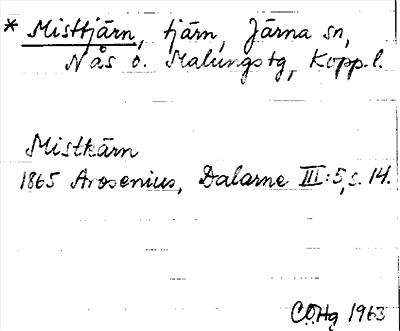 * Misttjärn, tjärn, Järna sn,
Nås o. Malungs tg, Kopp. l.
Mistkärn
1865 Arosenius, Dalarne III:5, s. 14.
COHg 1963